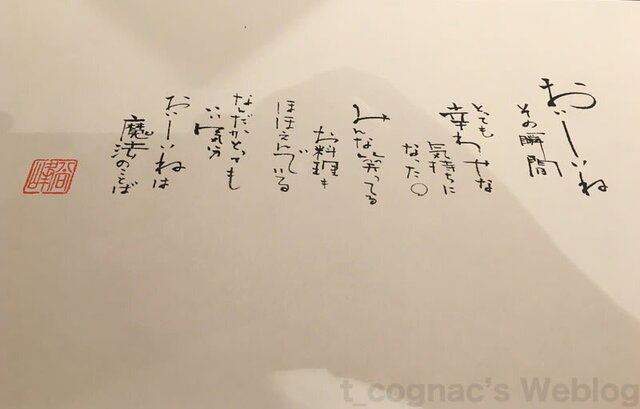 おいしいね
その瞬間
とても
幸わせな
気持ちに
なった〇
みんな笑ってる
お料理も
ほほえんでいる
なんだかとっても
いい気分
おいしいねは
魔法のことば
t_cognac's Weblog